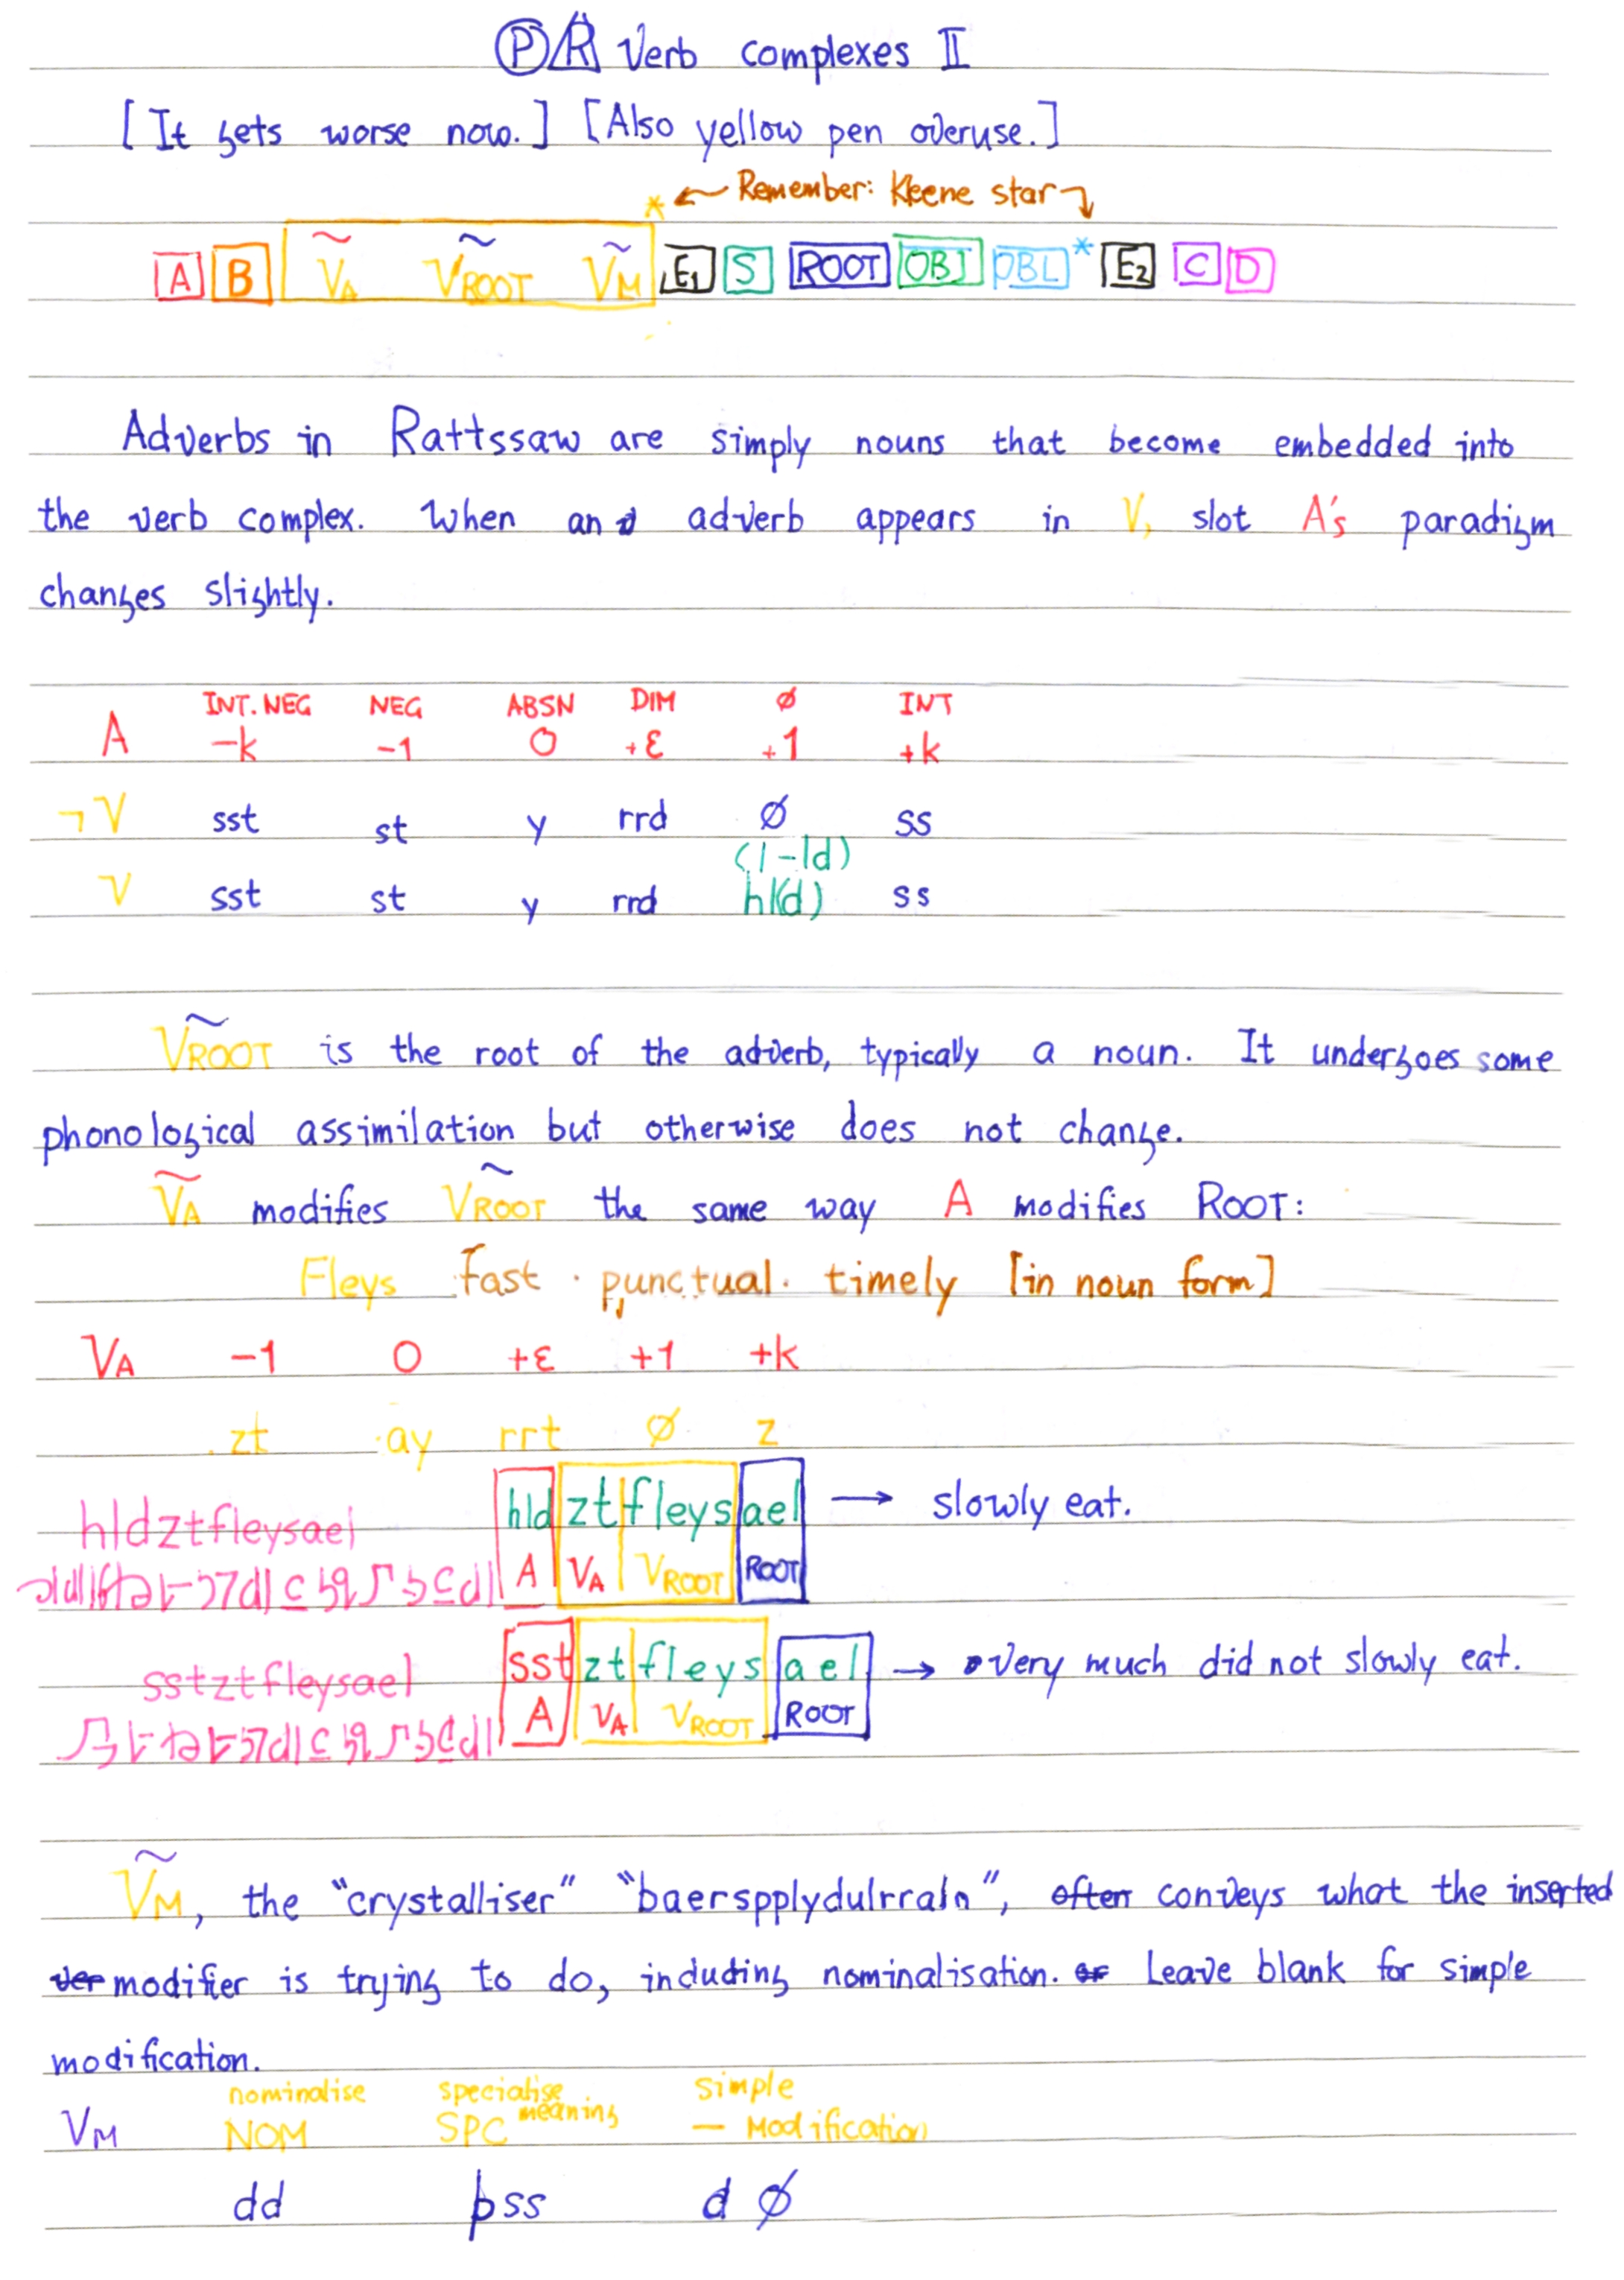 Ⓟ R Verb complexes II
[It gets worse now.] [Also yellow pen overuse.]
* ← Remember: Kleene star
A B V_A V_ROOT V_M E₁ S ROOT OBJ OBL * E₂ C D
Adverbs in Rattssaw are simply nouns that become embedded into
the verb complex. When an adverb appears in V, slot A's paradigm
changes slightly.
INT.NEG NEG ABSN DIM ∅ INT
A -k -1 0 +ε +1 +k
¬V sst st y rrd ∅ ss
(l-ld)
V sst st y rrd hl(d) ss
V_ROOT is the root of the adverb, typically a noun. It undergoes some
phonological assimilation but otherwise does not change.
V_A modifies V_ROOT the same way A modifies ROOT:
Fleys fast · punctual · timely [in noun form]
V_A -1 0 +ε +1 +k
zt ay rrt ∅ z
hldztfleysael hld zt fleys ael → slowly eat.
A V_A V_ROOT ROOT
sstztfleysael sst zt fleys ael → very much did not slowly eat.
A V_A V_ROOT ROOT
V_M, the "crystalliser" "baerspplydulrraln", often conveys what the inserted
ver modifier is trying to do, including nominalisation. or Leave blank for simple
modification.
nominalise specialise meaning simple
V_M NOM SPC — Modification
dd þss d ∅